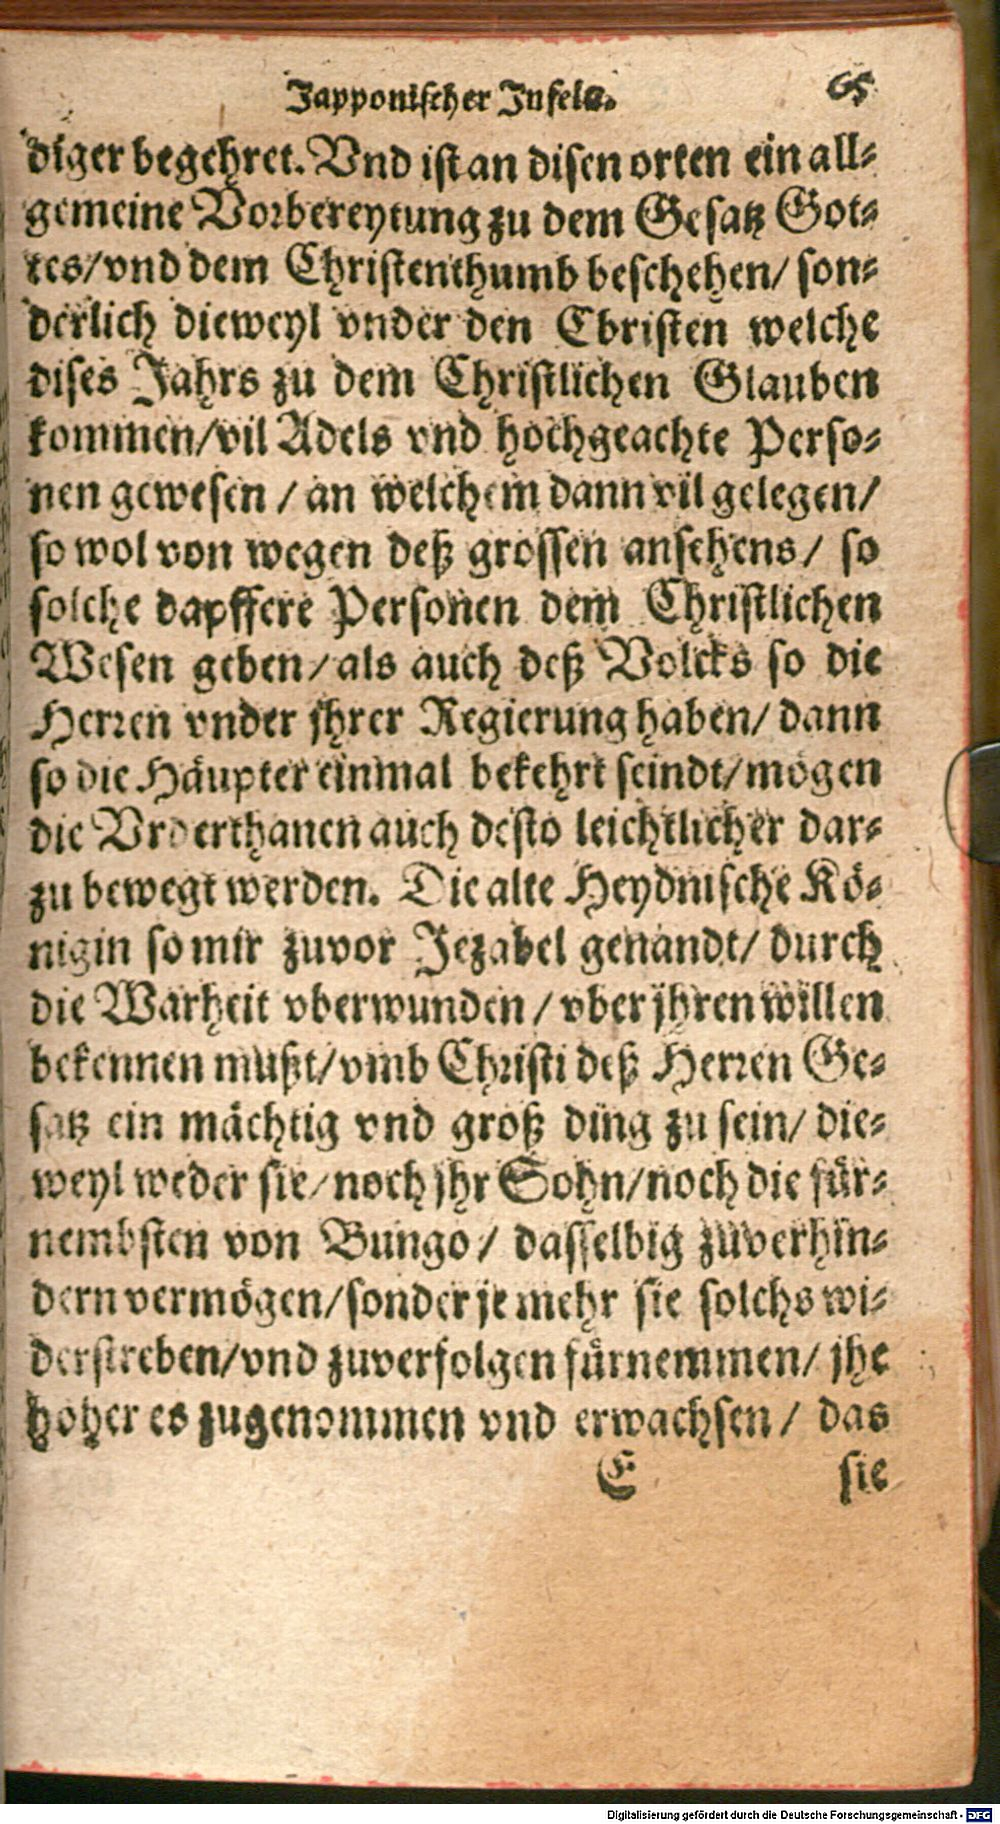 Japponischer Inseln.
65
diger begehret. Vnd ist an disen orten ein all-
gemeine Vorbereytung zu dem Gesatz Got-
tes/vnd dem Christenthumb beschehen/ son-
derlich dieweyl vnder den Christen welche
dises Jahrs zu dem Christlichen Glauben
kommen/vil Adels vnd hochgeachte Perso-
nen gewesen / an welchem dann vil gelegen/
so wol von wegen deß grossen ansehens/ so
solche dapffere Personen dem Christlichen
Wesen geben/als auch deß Volcks so die
Herren vnder jhrer Regierung haben/ dann
so die Häupter einmal bekehrt seindt/mögen
die Vnderthanen auch desto leichtlicher dar-
zu bewegt werden. Die alte Heydnische Kö-
nigin so mir zuvor Jezabel genandt/ durch
die Warheit vberwunden / vber jhren willen
bekennen mußt/vmb Christi deß Herren Ge-
satz ein mächtig vnd groß ding zu sein/ die-
weyl weder sie/noch jhr Sohn/noch die für-
nembsten von Bungo / dasselbig zuverhin-
dern vermögen/sonder je mehr sie solchs wi-
derstreben/vnd zuverfolgen fürnemmen/ jhe
hoher es zugenommen vnd erwachsen / das
E sie
Digitalisierung gefördert durch die Deutsche Forschungsgemeinschaft - DFG